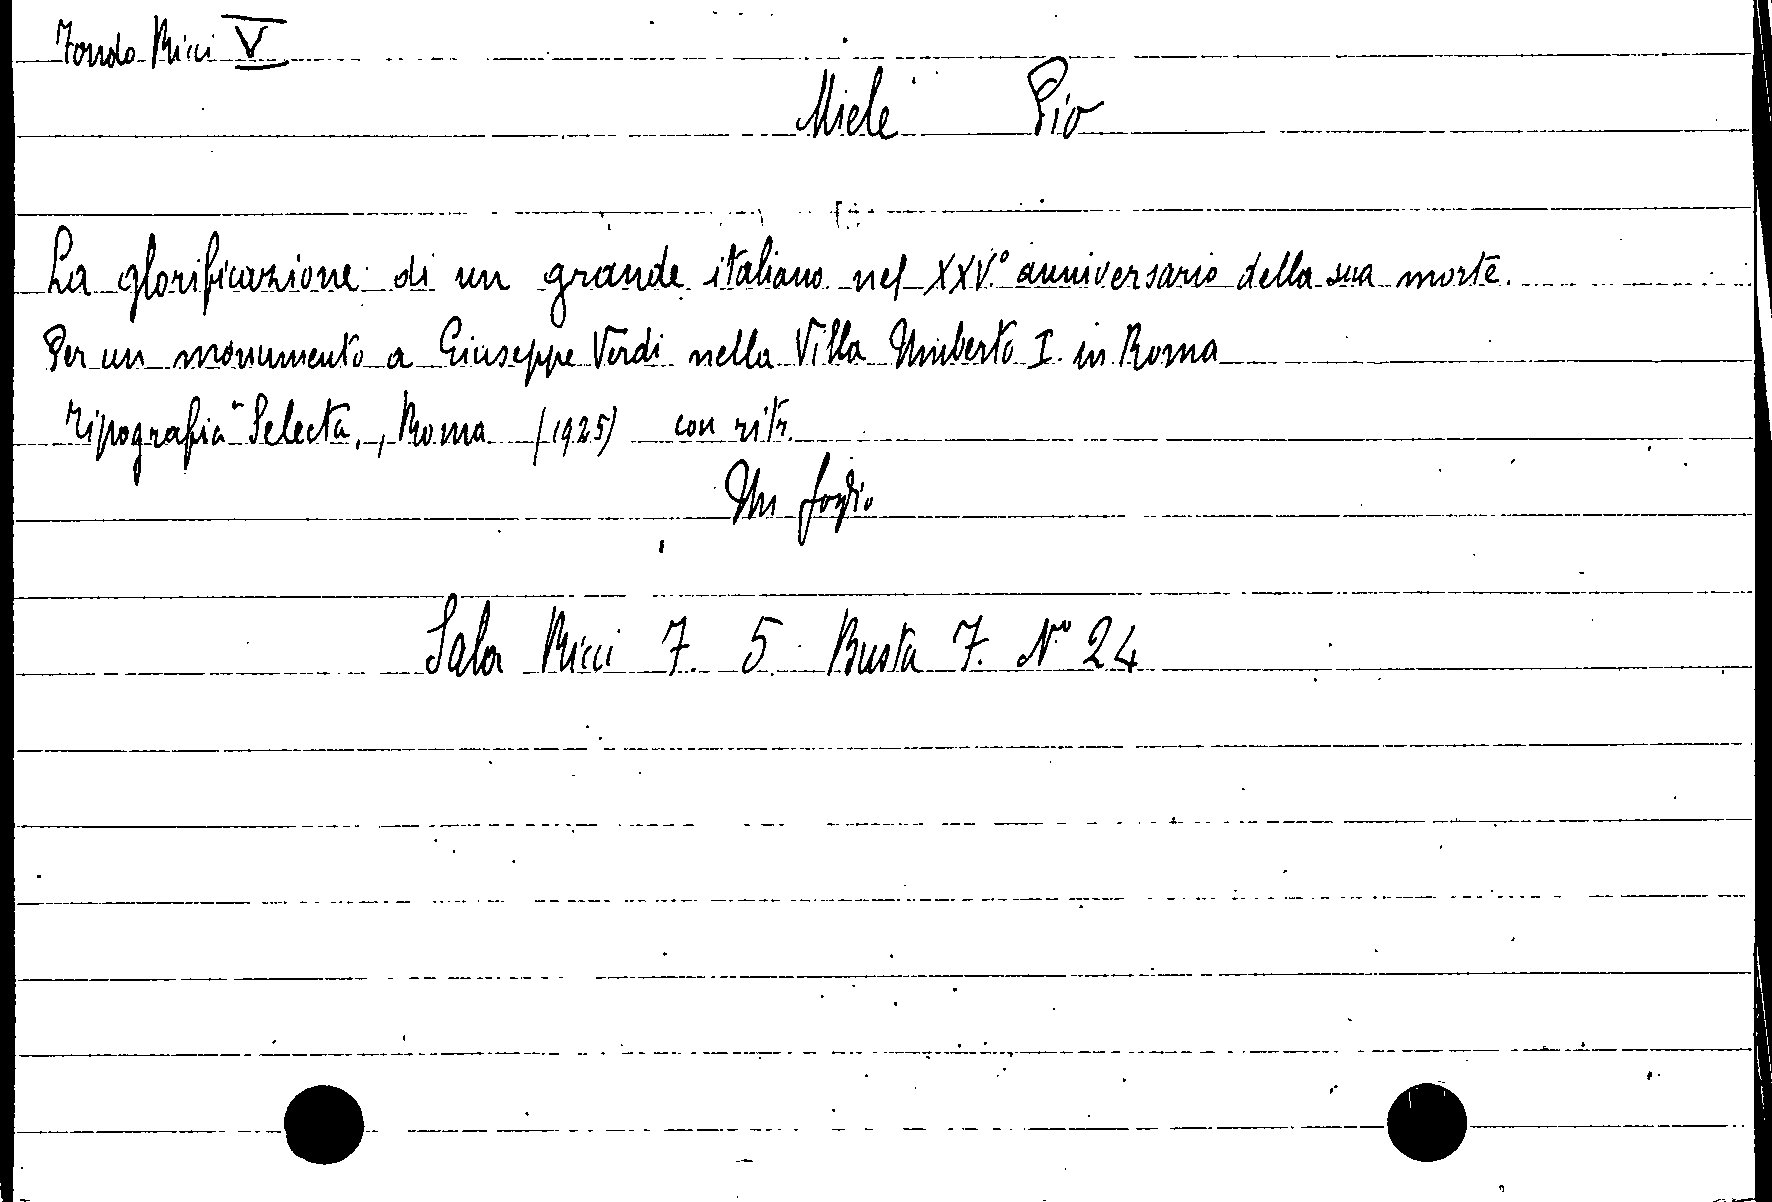 Fondo Ricci V
Miele Pio
La glorificazione di un grande italiano nel XXV.° anniversario della sua morte.
Per un monumento a Giuseppe Verdi nella Villa Umberto I. in Roma
Tipografia "Selecta", Roma (1925) con ritr.
Un foglio
Sala Ricci 7. 5 Busta 7. N° 24